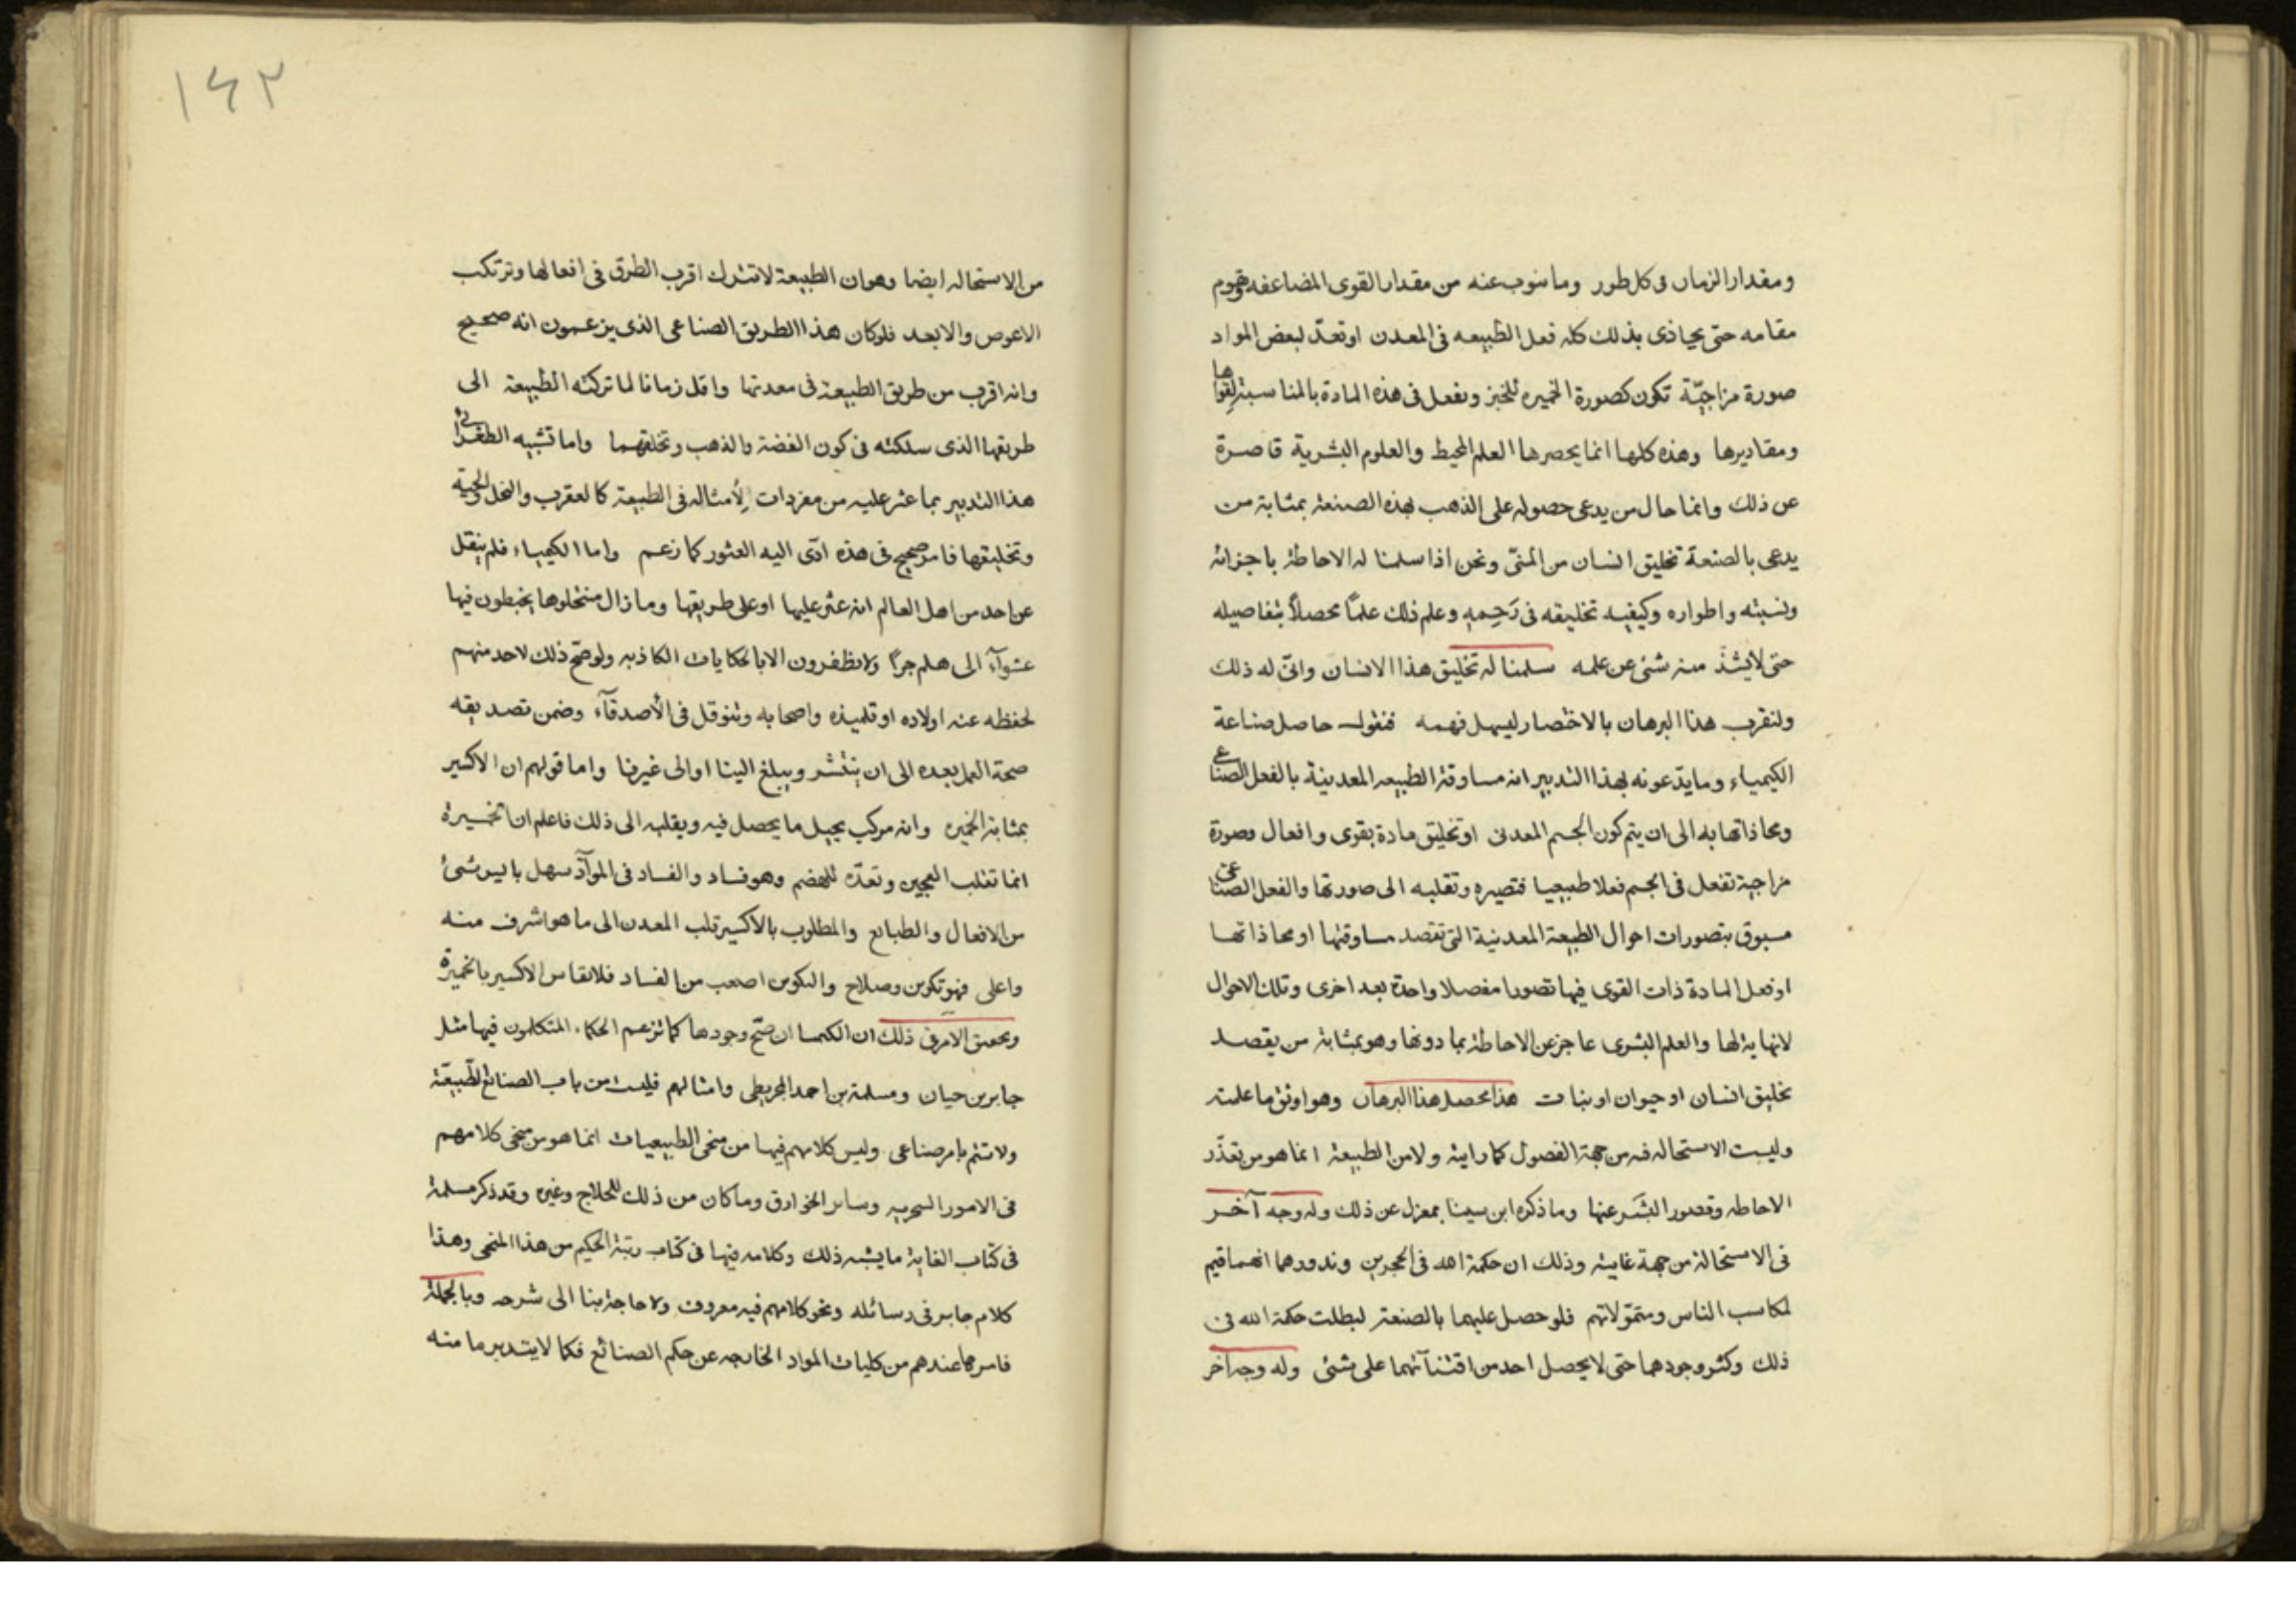 ومقدار الزمان فى كل طور وما ينوب عنه من مقدار القوى المضاعفه ويقوم
مقامه حتى يحاذى بذلك كله فعل الطبيعه فى المعدن او تعدّ لبعض المواد
صورة مزاجيّة تكون كصورة الخميره للخبز وتفعل فى هذه المادة بالمناسبة لقواها
ومقاديرها وهذه كلها انما يحصرها العلم المحيط والعلوم البشرية قاصرة
عن ذلك وانما حال من يدعى حصوله على الذهب بهذه الصنعة بمثابة من
يدعى بالصنعة تخليق انسان من المنىّ ونحن اذا سلمنا له الاحاطة باجزائه
ونسبته واطواره وكيفيه تخليقه فى رَحِمهِ وعلم ذلك علمًا محصلاً بتفاصيله
حتى لايشذّ منه شئ عن علمه سلمنا له تخليق هذا الانسان وانىّ له ذلك
ولنقرب هذا البرهان بالاختصار ليسهل فهمه فنقول حاصل صناعة
الكيمياء وما يدّعونه بهذا التدبير انه مساوقة الطبيعه المعدنية بالفعل الصناعى
ومحاذاتها به الى ان يتم كون الجسم المعدنى او تخليق مادة بقوى وافعال وصورة
مزاجية تفعل فى الجسم فعلا طبيعيا فتصيره وتقلبه الى صورتها والفعل الصناعى
مسبوق بتصورات احوال الطبيعة المعدنية التى تقصد مساوقتها او محاذاتها
او فعل المادة ذات القوى فيها تصورا مفصلا واحدة بعد اخرى وتلك الاحوال
لانهاية لها والعلم البشرى عاجز عن الاحاطة بما دونها وهو بمثابة من يقصد
تخليق انسان او حيوان او نبات هذا محصل هذا البرهان وهو اوثق ما علمته
وليست الاستحاله فيه من جهة الفصول كما رايته ولامن الطبيعة انما هو من تعذّر
الاحاطه وقصور البَشَر عنها وما ذكره ابن سينا بمعزل عن ذلك وله وجه آخر
فى الاستحالة من جهة غايته وذلك ان حكمة الله فى الحجرين وندورهما انهما قيم
لمكاسب الناس ومتموّلاتهم فلو حصل عليهما بالصنعة لبطلت حكمة الله فى
ذلك وكثر وجودهما حتى لايحصل احد من اقتنآئهما على شئ وله وجه آخر
١٤٢
من الاستحاله ايضا وهو ان الطبيعة لاتترك اقرب الطرق فى افعالها وترتكب
الاعوص والابعد فلو كان هذا الطريق الصناعى الذى يزعمون انه صحيح
وانه اقرب من طريق الطبيعة فى معدنها واقل زمانا لما تركته الطبيعة الى
طريقها الذى سلكته فى كون الفضة والذهب وتخلقهما واما تشبيه الطغرائى
هذا التدبير بما عثر عليه من مفردات لأمثاله فى الطبيعة كالعقرب والنحل والحية
وتخليقها فامر صحيح فى هذه ادّى اليه العثور كما زعم واما الكيمياء فلم ينقل
عن احد من اهل العالم انه عثر عليها او على طريقها وما زال منتحلوها يخبطون فيها
عشوآء الى هلم جرًّا ولايظفرون الا بالحكايات الكاذبه ولو صحّ ذلك لاحد منهم
لحفظه عنه اولاده او تلميذه واصحابه وتنوقل فى الأصدقآء وضمن تصديقه
صحة العمل بعده الى ان ينتشر ويبلغ الينا او الى غيرنا واما قولهم ان الاكسير
بمثابة الخميره وانه مركب يحيل ما يحصل فيه ويقلبه الى ذلك فاعلم ان الخميرة
انما تقلب العجين وتعدّه للهضم وهو فساد والفساد فى الموآدّ سهل بايسر شئ
من الافعال والطبايع والمطلوب بالاكسير قلب المعدن الى ما هو اشرف منه
واعلى فهو تكوين وصلاح والتكوين اصعب من الفساد فلا يقاس الاكسير بالخميرة
وتحقيق الامر فى ذلك ان الكيميا ان صحّ وجودها كما تزعم الحكماء المتكلمون فيها مثل
جابر بن حيان ومسلمة بن احمد المجريطى وامثالهم فليست من باب الصنائع الطّبيعّة
ولا تتم بامر صناعى وليس كلامهم فيها من منحى الطبيعيات انما هو من منحى كلامهم
فى الامور السحريه وسائر الخوارق وما كان من ذلك للحلاج وغيره وقد ذكر مسلمة
فى كتاب الغاية ما يشبه ذلك وكلامه فيها فى كتاب رتبة الحكيم من هذا المنحى وهذا
كلام جابر فى رسائله ونحو كلامهم فيه معروف ولا حاجة بنا الى شرحه وبالجملة
فامرها عندهم من كليات المواد الخارجه عن حكم الصنائع فكما لايتدبر ما منه